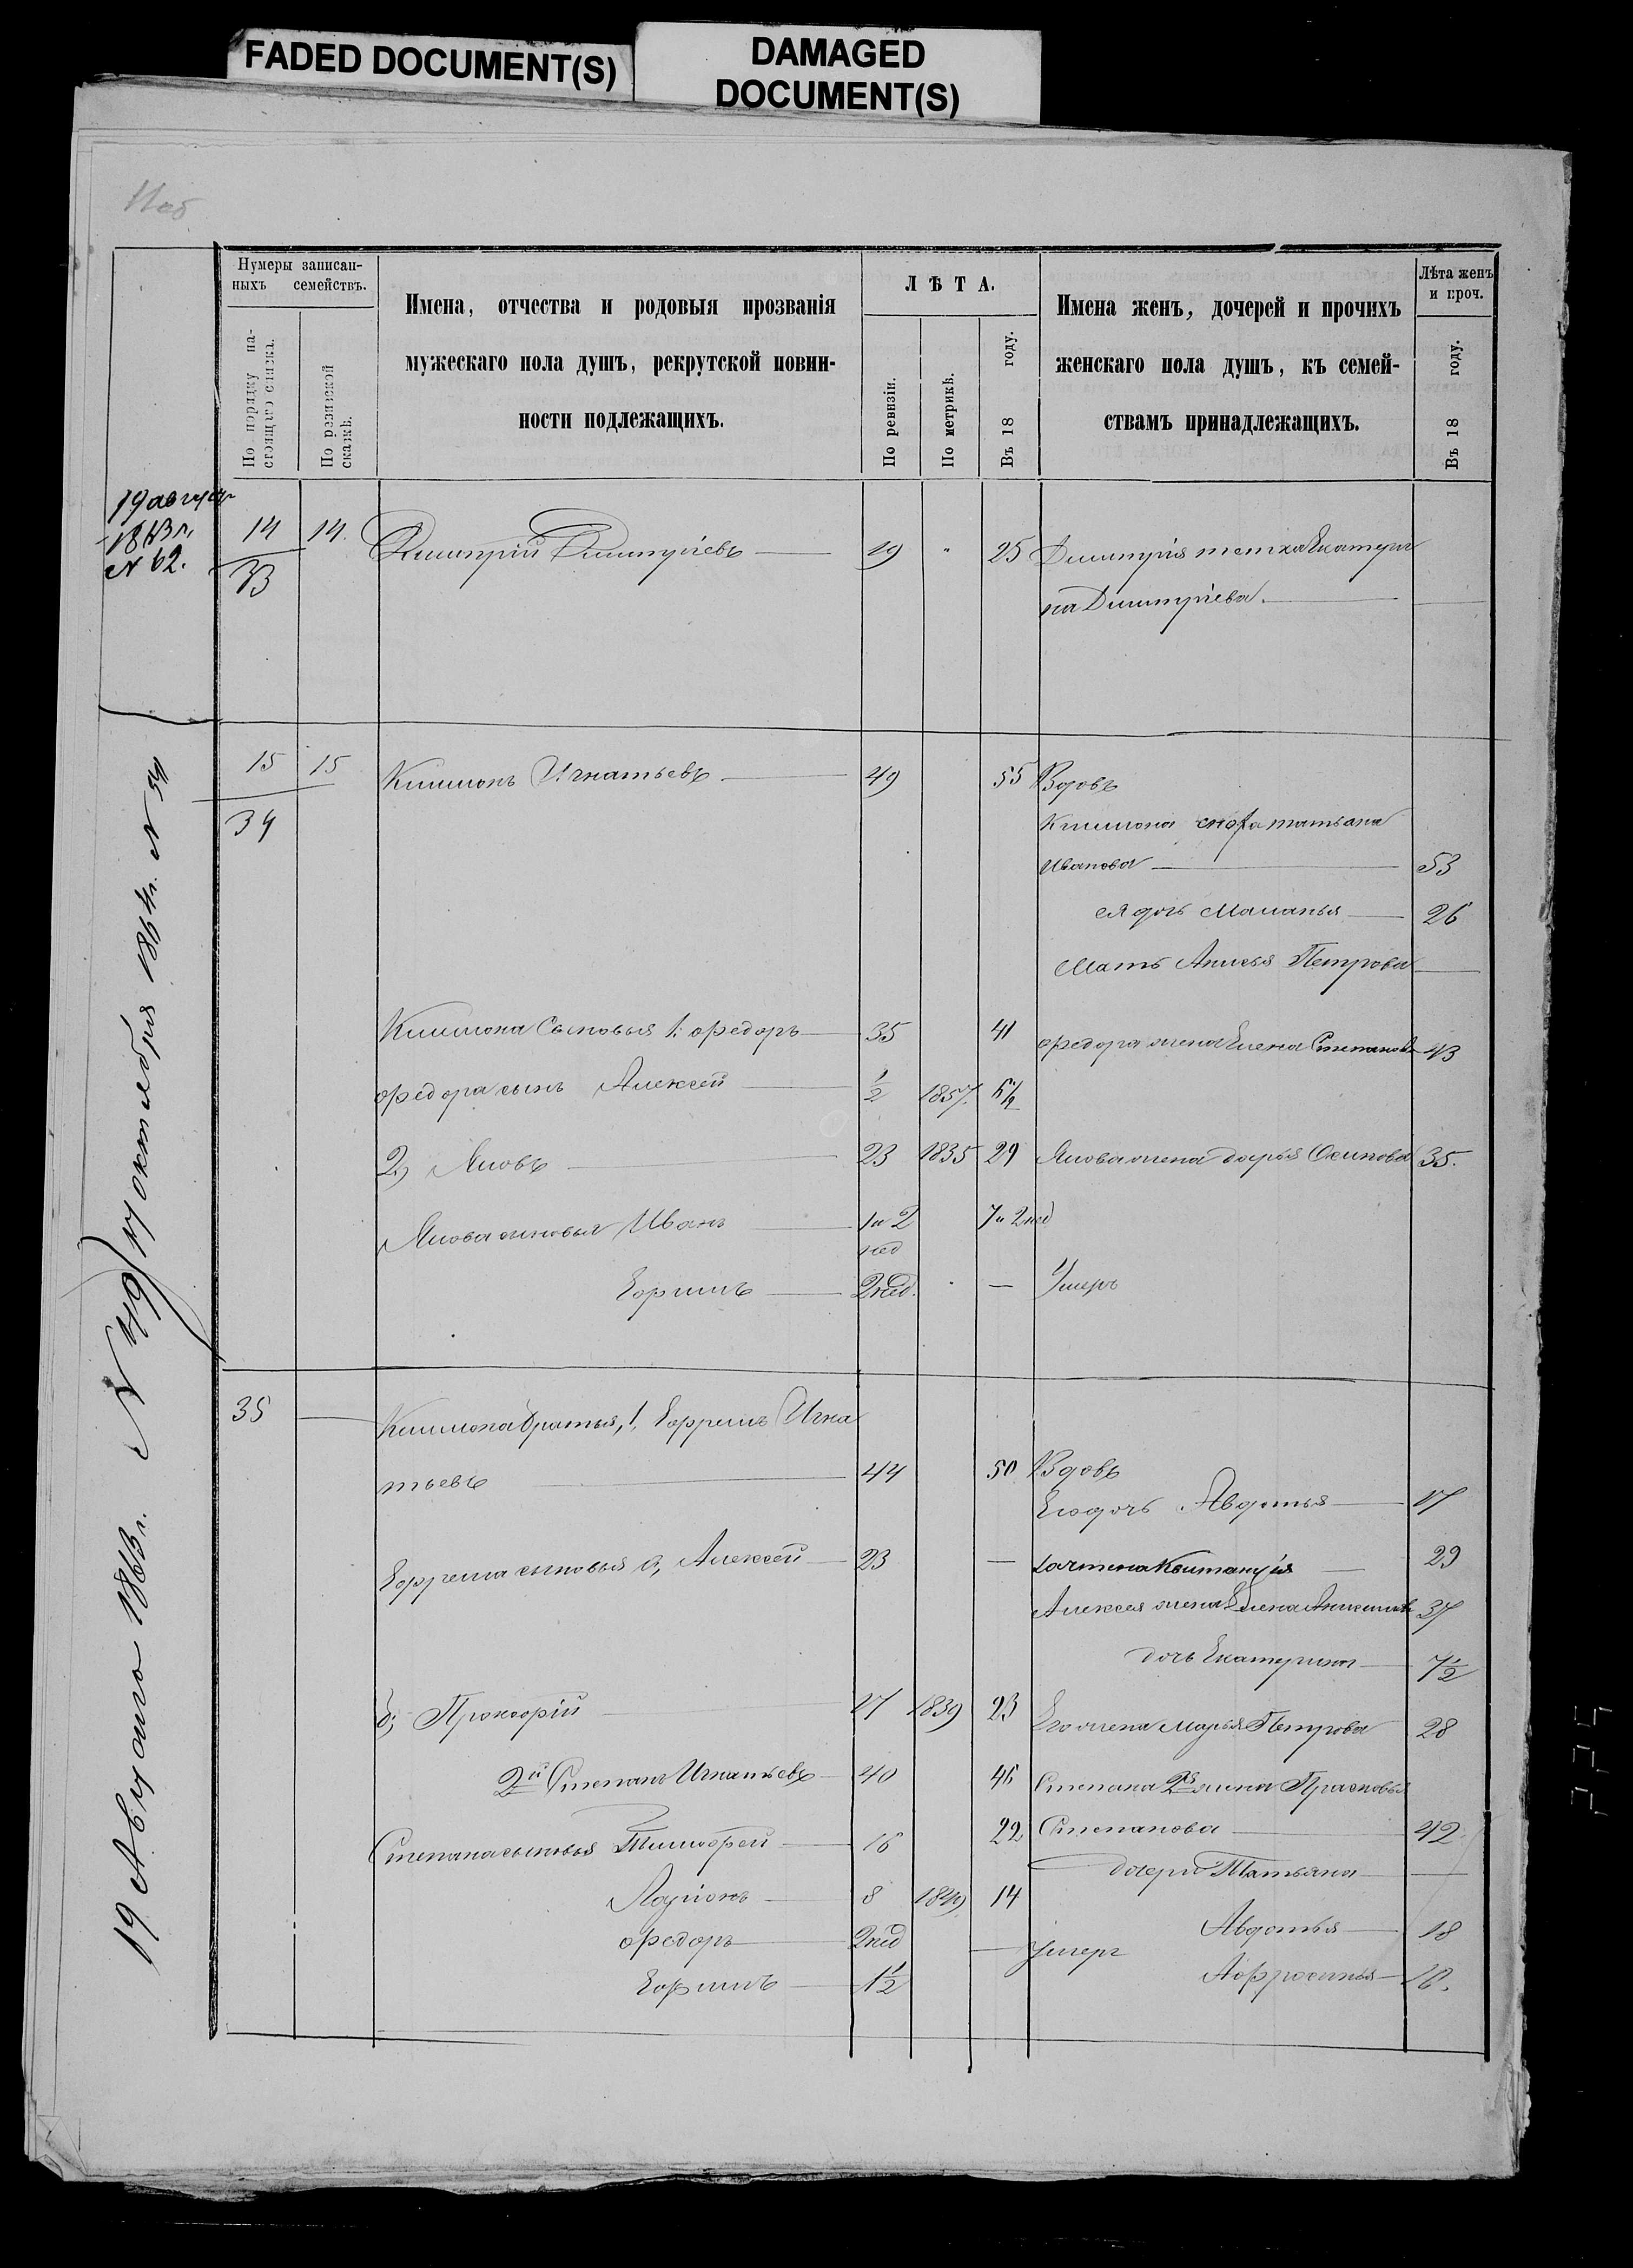 FADED DOCUMENT(S)
DAMAGED
DOCUMENT(S)
Нумеры записан-
ныхъ семействъ.
По порядку на-
стоящаго списка.
По ревизской
сказкѣ.
Имена, отчества и родовыя прозванія
мужескаго пола душъ, рекрутской повин-
ности подлежащихъ.
ЛѢТА.
По ревизіи.
По метрикѣ.
Въ 18 году.
Имена женъ, дочерей и прочихъ
женскаго пола душъ, къ семей-
ствамъ принадлежащихъ.
Лѣта женъ
и проч.
Въ 18 году.
19 август
1863 г.
N 62.
14 14. Дмитрій Дмитріевъ 19 " 25 Дмитрія тетка Екатери
33
на Дмитріева.
15 15 Климонъ Игнатьевъ 49 55 Вдовъ
34 Климона сноха татьяна
Иванова 53
ея дочь Маланья 26
Мать Анисья Петрова
Климона Сыновья 1. Федоръ 35 41 Федора жена Елена Степанова 43
Федора сынъ Алексей 1/2 1857. 6 1/2
2, Яковъ 23 1835 29 Якова жена дарья Осипова 35.
Якова сыновья Иванъ 1 и 2 7 и 2 нед
нед
Ефимъ 2 нед. — Умеръ
35 Климона братья, 1, Ефремъ Игна
тьевъ 44 50 Вдовъ
Его дочь Авдотья 17
Ефрема сыновья а, Алексей 23 — зачтена квитанція 29
Алексея жена Елена 37
дочь Екатерина 7 1/2
б, Прокофій 17 1839 23 Его жена Марья Петрова 28
2й Степанъ Игнатьевъ 40 46 Степана 2я жена Прасковья
Степана сыновья Тимофей 16 22 Степанова 42
дочери Татьяна
Ларіонъ 8 1849 14
Авдотья 18
Федоръ 2 нед — умеръ
Ефимъ 1 1/2 Афросинья 16.
17 октября 1864 г. N 54
19 Августа 1863 г. N 49